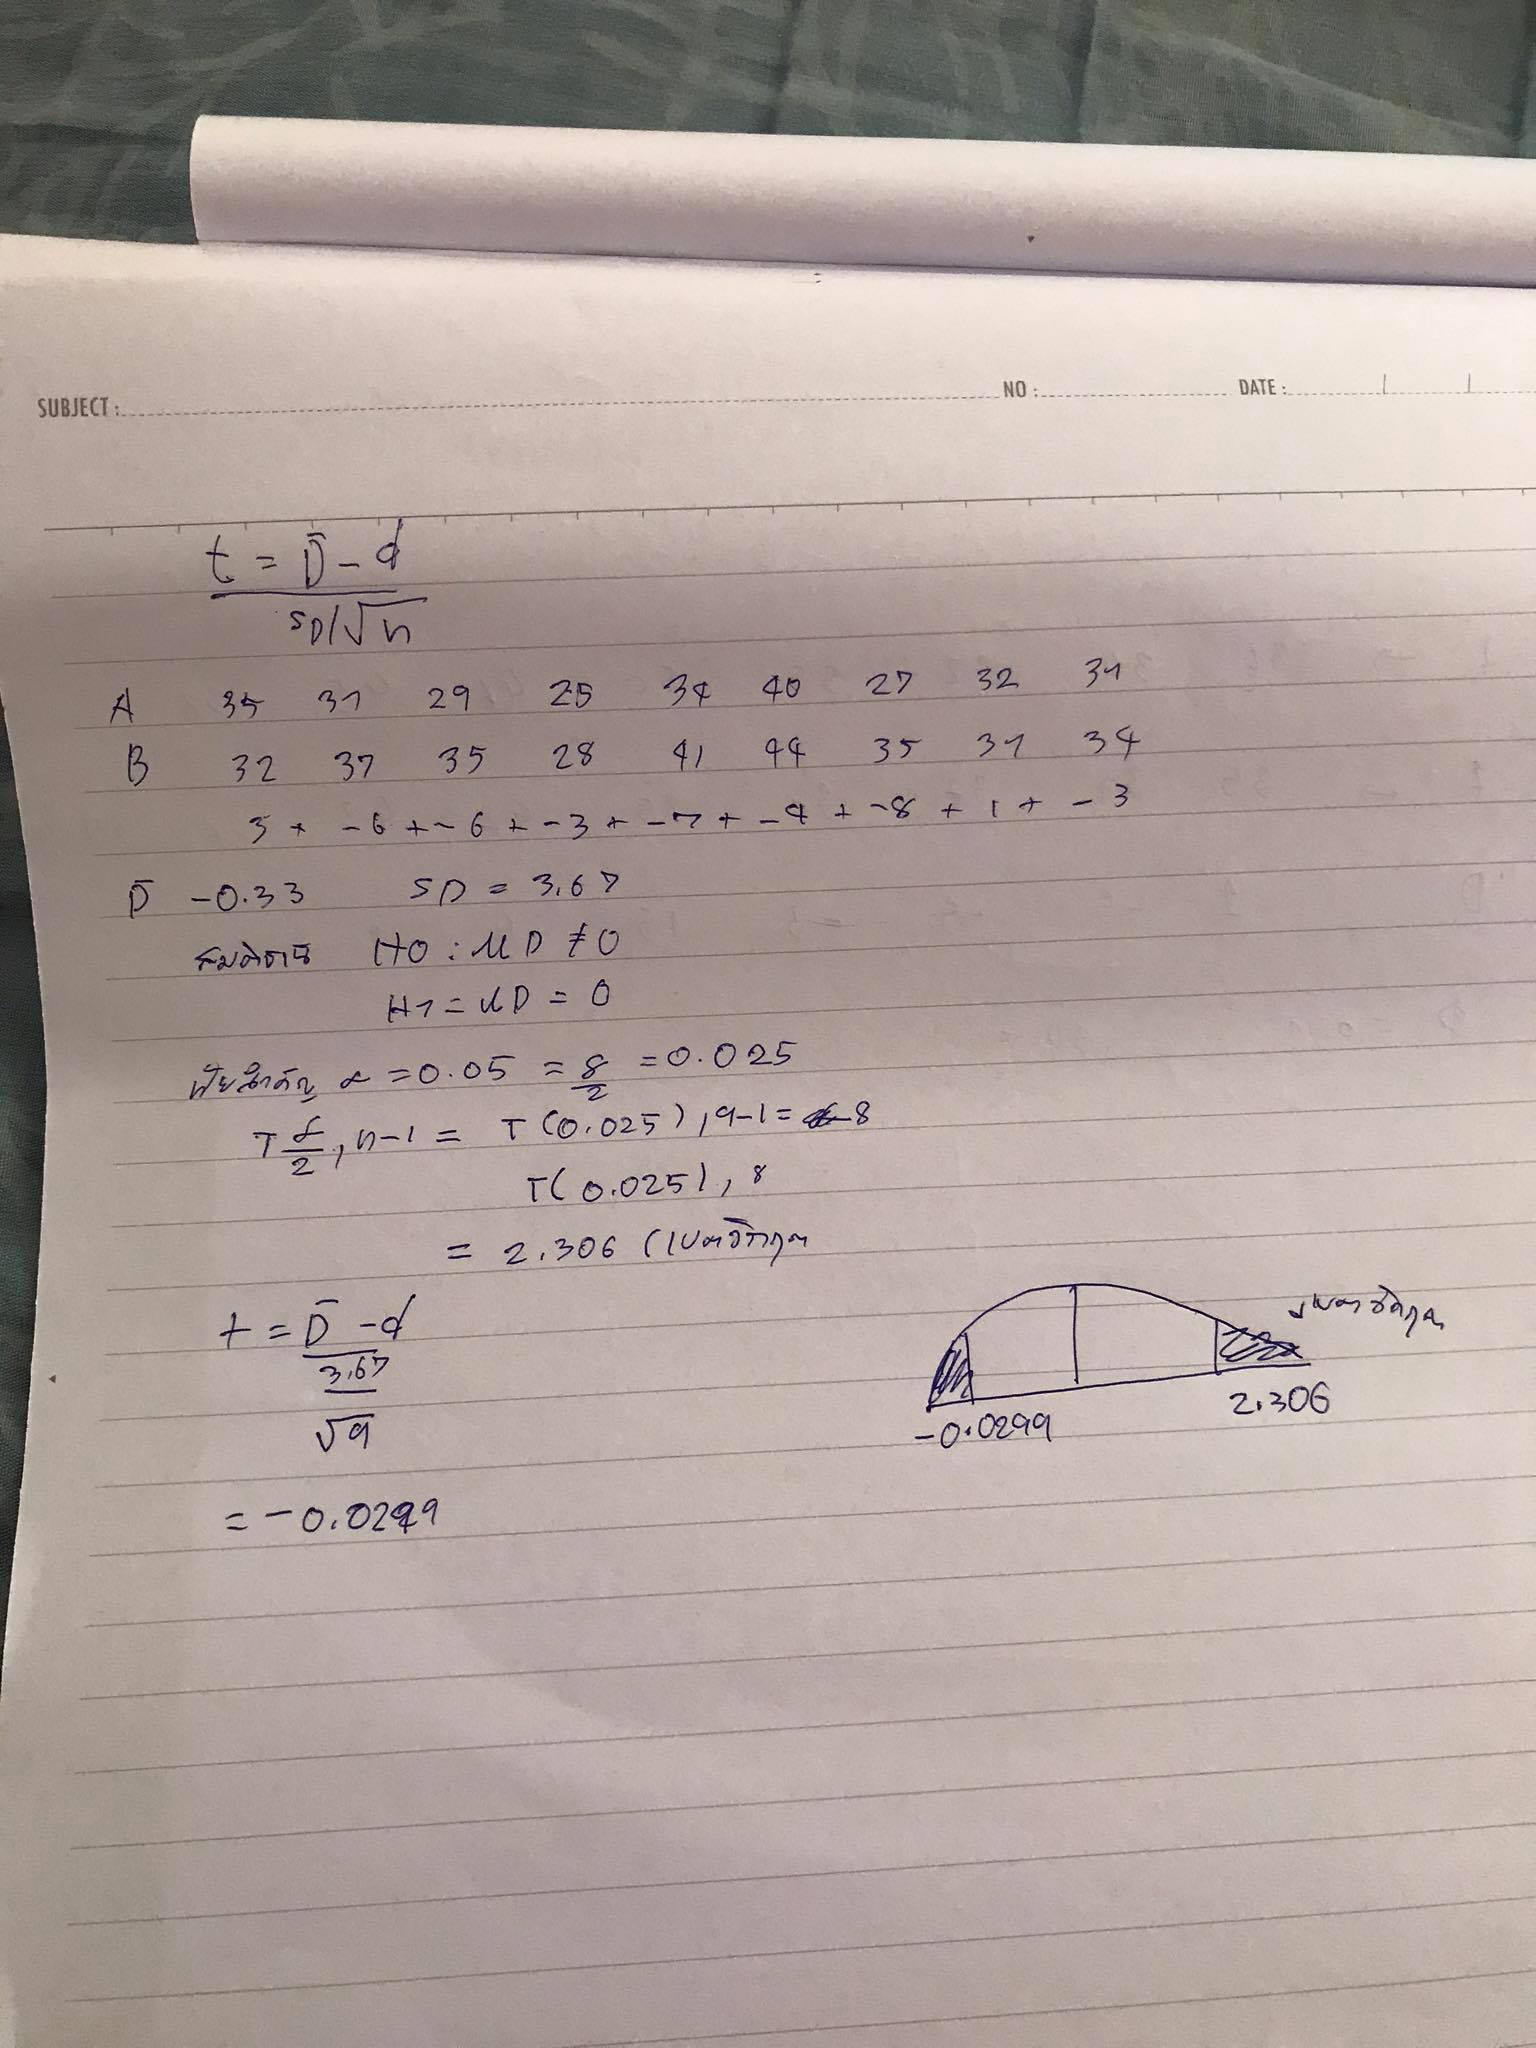 SUBJECT : NO : DATE :
t = D̄ - d
SD/√n
A 35 31 29 25 34 40 27 32 31
B 32 37 35 28 41 44 35 31 34
3 + -6 + -6 + -3 + -7 + -4 + -8 + 1 + -3
D̄ -0.33 SD = 3.67
สมมติฐาน H0 : μD ≠ 0
H1 = μD = 0
นัยสำคัญ α = 0.05 = 8/2 = 0.025
T α/2, n-1 = T (0.025), 9-1 = 8
T( 0.025), 8
= 2.306 (เขตวิกฤต
t = D̄ - d
3.67
√9
เขตวิกฤต
-0.0299 2.306
= -0.0299